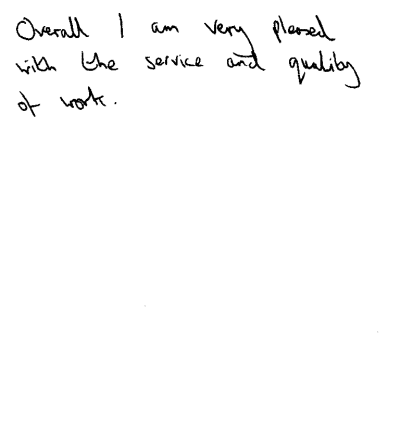 Overall I am very pleased
with the service and quality
of work.